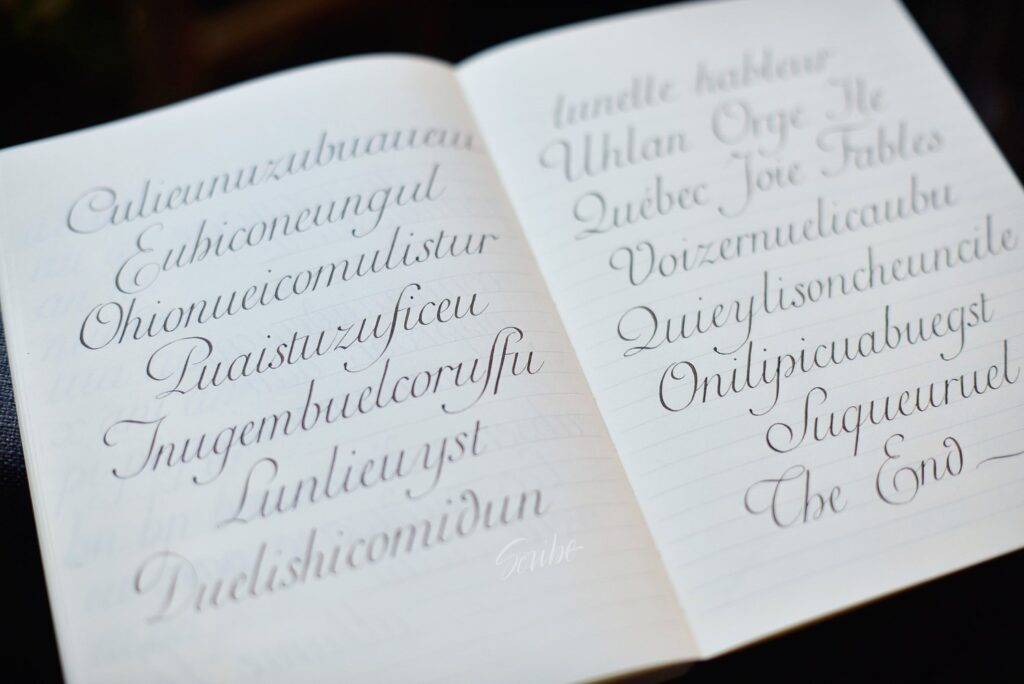 Culieunuzubuaueuu
Eubiconeungul
Ohionueicomulistur
Puaistuzuficeu
Inugembuelcoruffu
Lunlieuyst
Duelishicomidun
Scribe
lunette hableur
Uhlan Orge Ile
Québec Joie Fables
Voizernuelicaubu
Quieylisoncheuncile
Onilipicuabuegst
Suqueuruel
The End